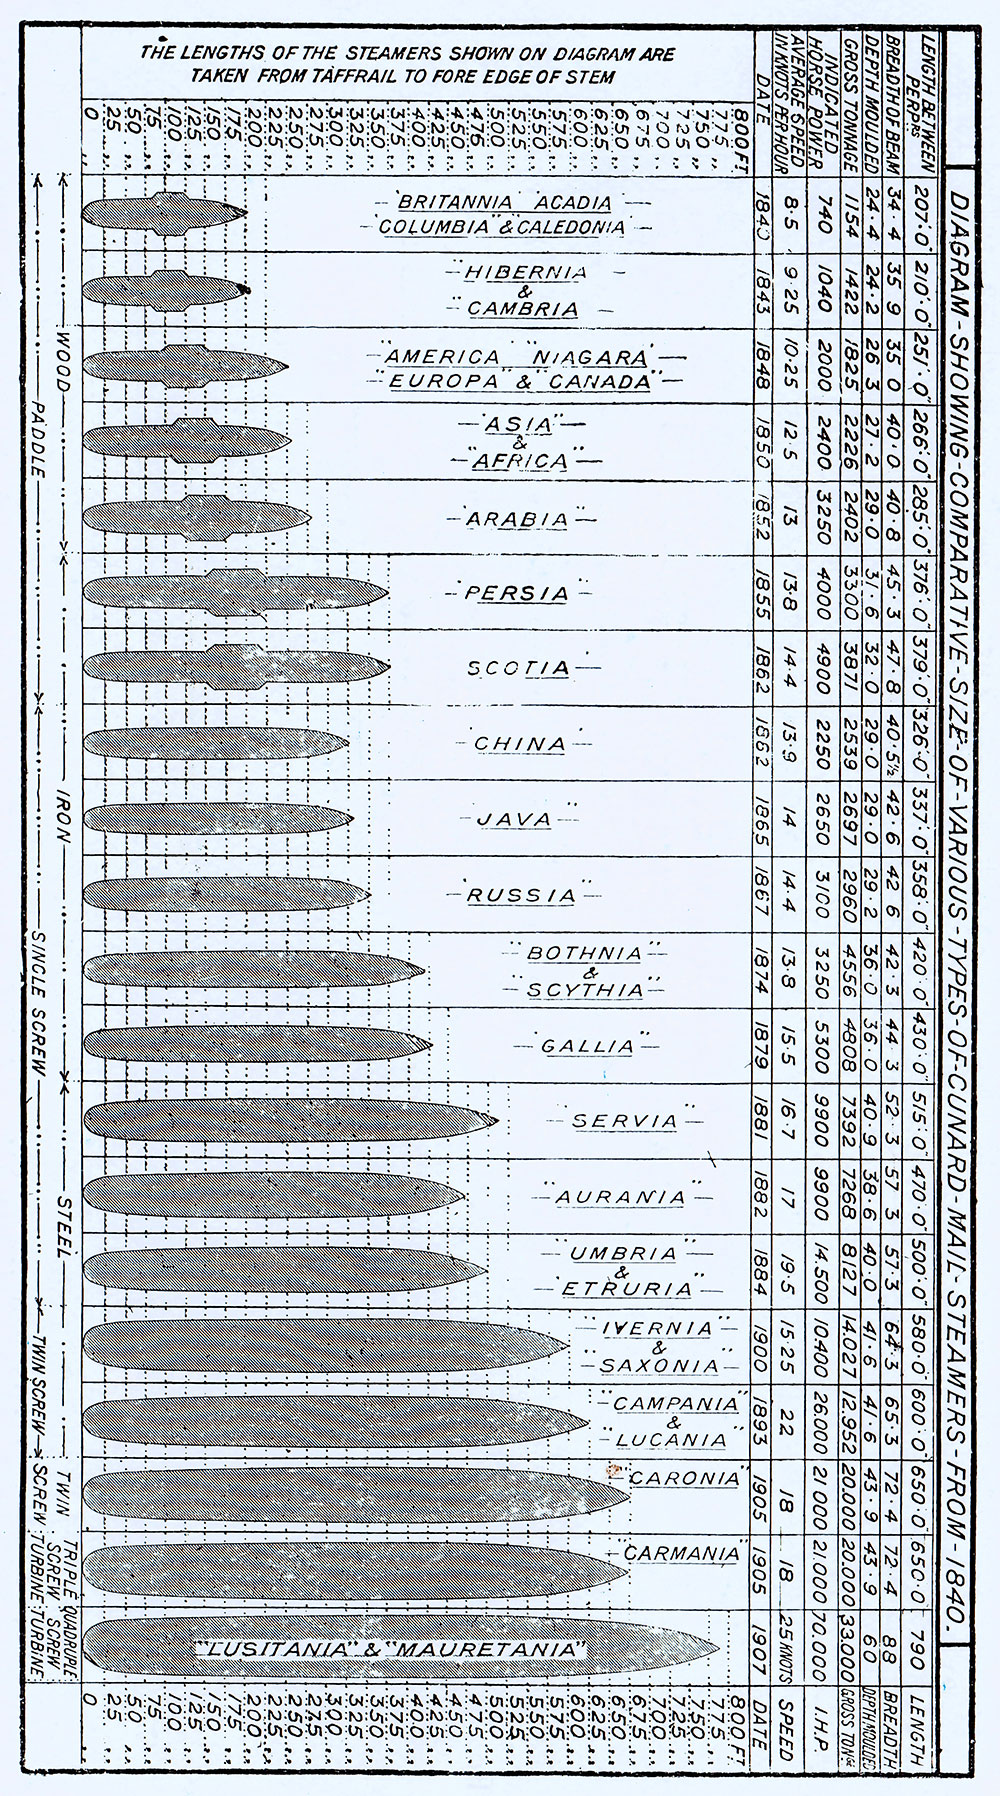 DIAGRAM-SHOWING-COMPARATIVE-SIZE-OF-VARIOUS-TYPES-OF-CUNARD-MAIL-STEAMERS-FROM-1840.
THE LENGTHS OF THE STEAMERS SHOWN ON DIAGRAM ARE
TAKEN FROM TAFFRAIL TO FORE EDGE OF STEM
0 25 50 75 100 150 175 200 225 250 275 300 325 350 375 400 425 450 475 500 525 550 575 600 625 650 675 700 725 750 775 800 FT
DATE
AVERAGE SPEED IN KNOTS PER HOUR
INDICATED HORSE POWER
GROSS TONNAGE
DEPTH MOULDED
BREADTH OF BEAM
LENGTH BETWEEN PERPRS
"BRITANNIA" ACADIA
"COLUMBIA" & CALEDONIA"
1840 8·5 740 1154 24·4 34·4 207'·0"
"HIBERNIA
&
"CAMBRIA
1843 9·25 1040 1422 24·2 35 9 210'·0"
"AMERICA" "NIAGARA"
"EUROPA" & "CANADA"
1848 10·25 2000 1825 26 3 35 0 251'·0"
"ASIA"
&
"AFRICA"
1850 12·5 2400 2226 27·2 40·0 266'·0"
"ARABIA"
1852 13 3250 2402 29·0 40·8 285'·0"
"PERSIA"
1855 13·8 4000 3300 31·6 45·3 376'·0"
SCOTIA"
1862 14·4 4900 3871 32·0 47·8 379'·0"
"CHINA"
1862 13·9 2250 2539 29·0 40·5½ 326'·0"
"JAVA"
1865 14 2650 2697 29·0 42·6 337'·0"
"RUSSIA"
1867 14 4 3100 2960 29·2 42 6 358'·0"
"BOTHNIA"
&
"SCYTHIA"
1874 13·8 3250 4556 36·0 42·3 420'·0"
"GALLIA"
1879 15·5 5300 4808 36·0 44·3 430'·0"
"SERVIA"
1881 16·7 9900 7392 40·9 52·3 515'·0"
"AURANIA"
1882 17 9900 7268 38·6 57 3 470'·0"
"UMBRIA"
&
"ETRURIA"
1884 19·5 14.500 8127 40·0 57·3 500'·0"
"IVERNIA"
&
"SAXONIA"
1900 15·25 10.400 14.027 41·6 64·3 580'·0"
"CAMPANIA"
&
"LUCANIA"
1893 22 26.000 12.952 41·6 65·3 600'·0"
"CARONIA"
1905 18 21.000 20.000 43·9 72·4 650'·0"
"CARMANIA"
1905 18 21.000 20.000 43·9 72·4 650·0
"LUSITANIA" & "MAURETANIA"
1907 25 KNOTS 70.000 33.000 60 88 790
WOOD
IRON
STEEL
PADDLE
SINGLE SCREW
TWIN SCREW
TWIN SCREW
TRIPLE SCREW TURBINE
QUADRUPLE SCREW TURBINE
0 25 50 75 100 150 175 200 225 250 275 300 325 350 375 400 425 450 475 500 525 550 575 600 625 650 675 700 725 750 775 800 FT
DATE
SPEED
I.H.P.
GROSS TONGE
DEPTH MOULDED
BREADTH
LENGTH